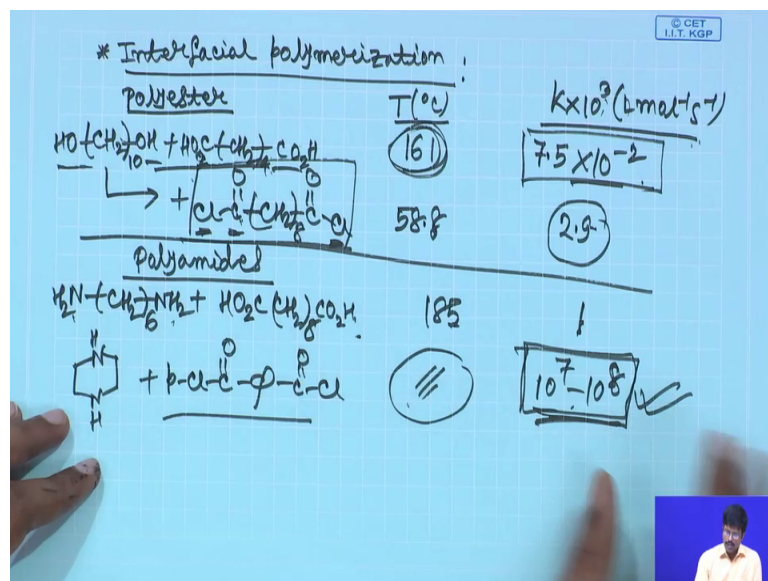 © CET
I.I.T. KGP
* Interfacial polymerization :
Polyester T(°C) K×10³ (L mol⁻¹ s⁻¹)
HO-(CH₂)₁₀-OH + HO₂C-(CH₂)₄-CO₂H 161 7.5 × 10⁻²
+ Cl-C(=O)-(CH₂)₈-C(=O)-Cl 58.8 2.9
Polyamides
H₂N-(CH₂)₆-NH₂ + HO₂C(CH₂)₈CO₂H. 185 1
H N N H + p-Cl-C(=O)-φ-C(=O)-Cl 10⁷-10⁸